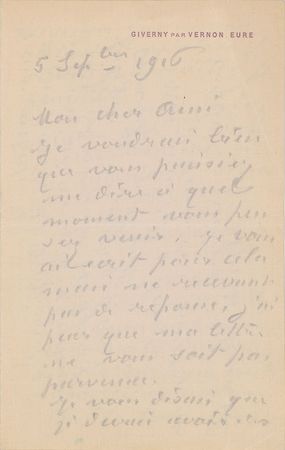 GIVERNY PAR VERNON EURE
5 Septbre 1916
Mon cher Ami
Je voudrais bien
que vous puissiez
me dire à quel
moment vous pen
sez venir. Je vous
ai écrit pour cela
mais ne recevant
pas de réponse, j'ai
peur que ma lettre
ne vous soit pas
parvenue.
Je vous disais que
je devais avoir